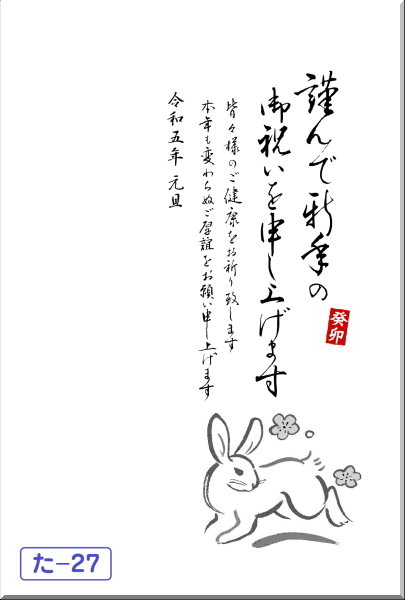 謹んで新年の
御祝いを申し上げます
癸卯
皆々様のご健康をお祈り致します
本年も変わらぬご厚誼をお願い申し上げます
令和五年 元旦
た-27